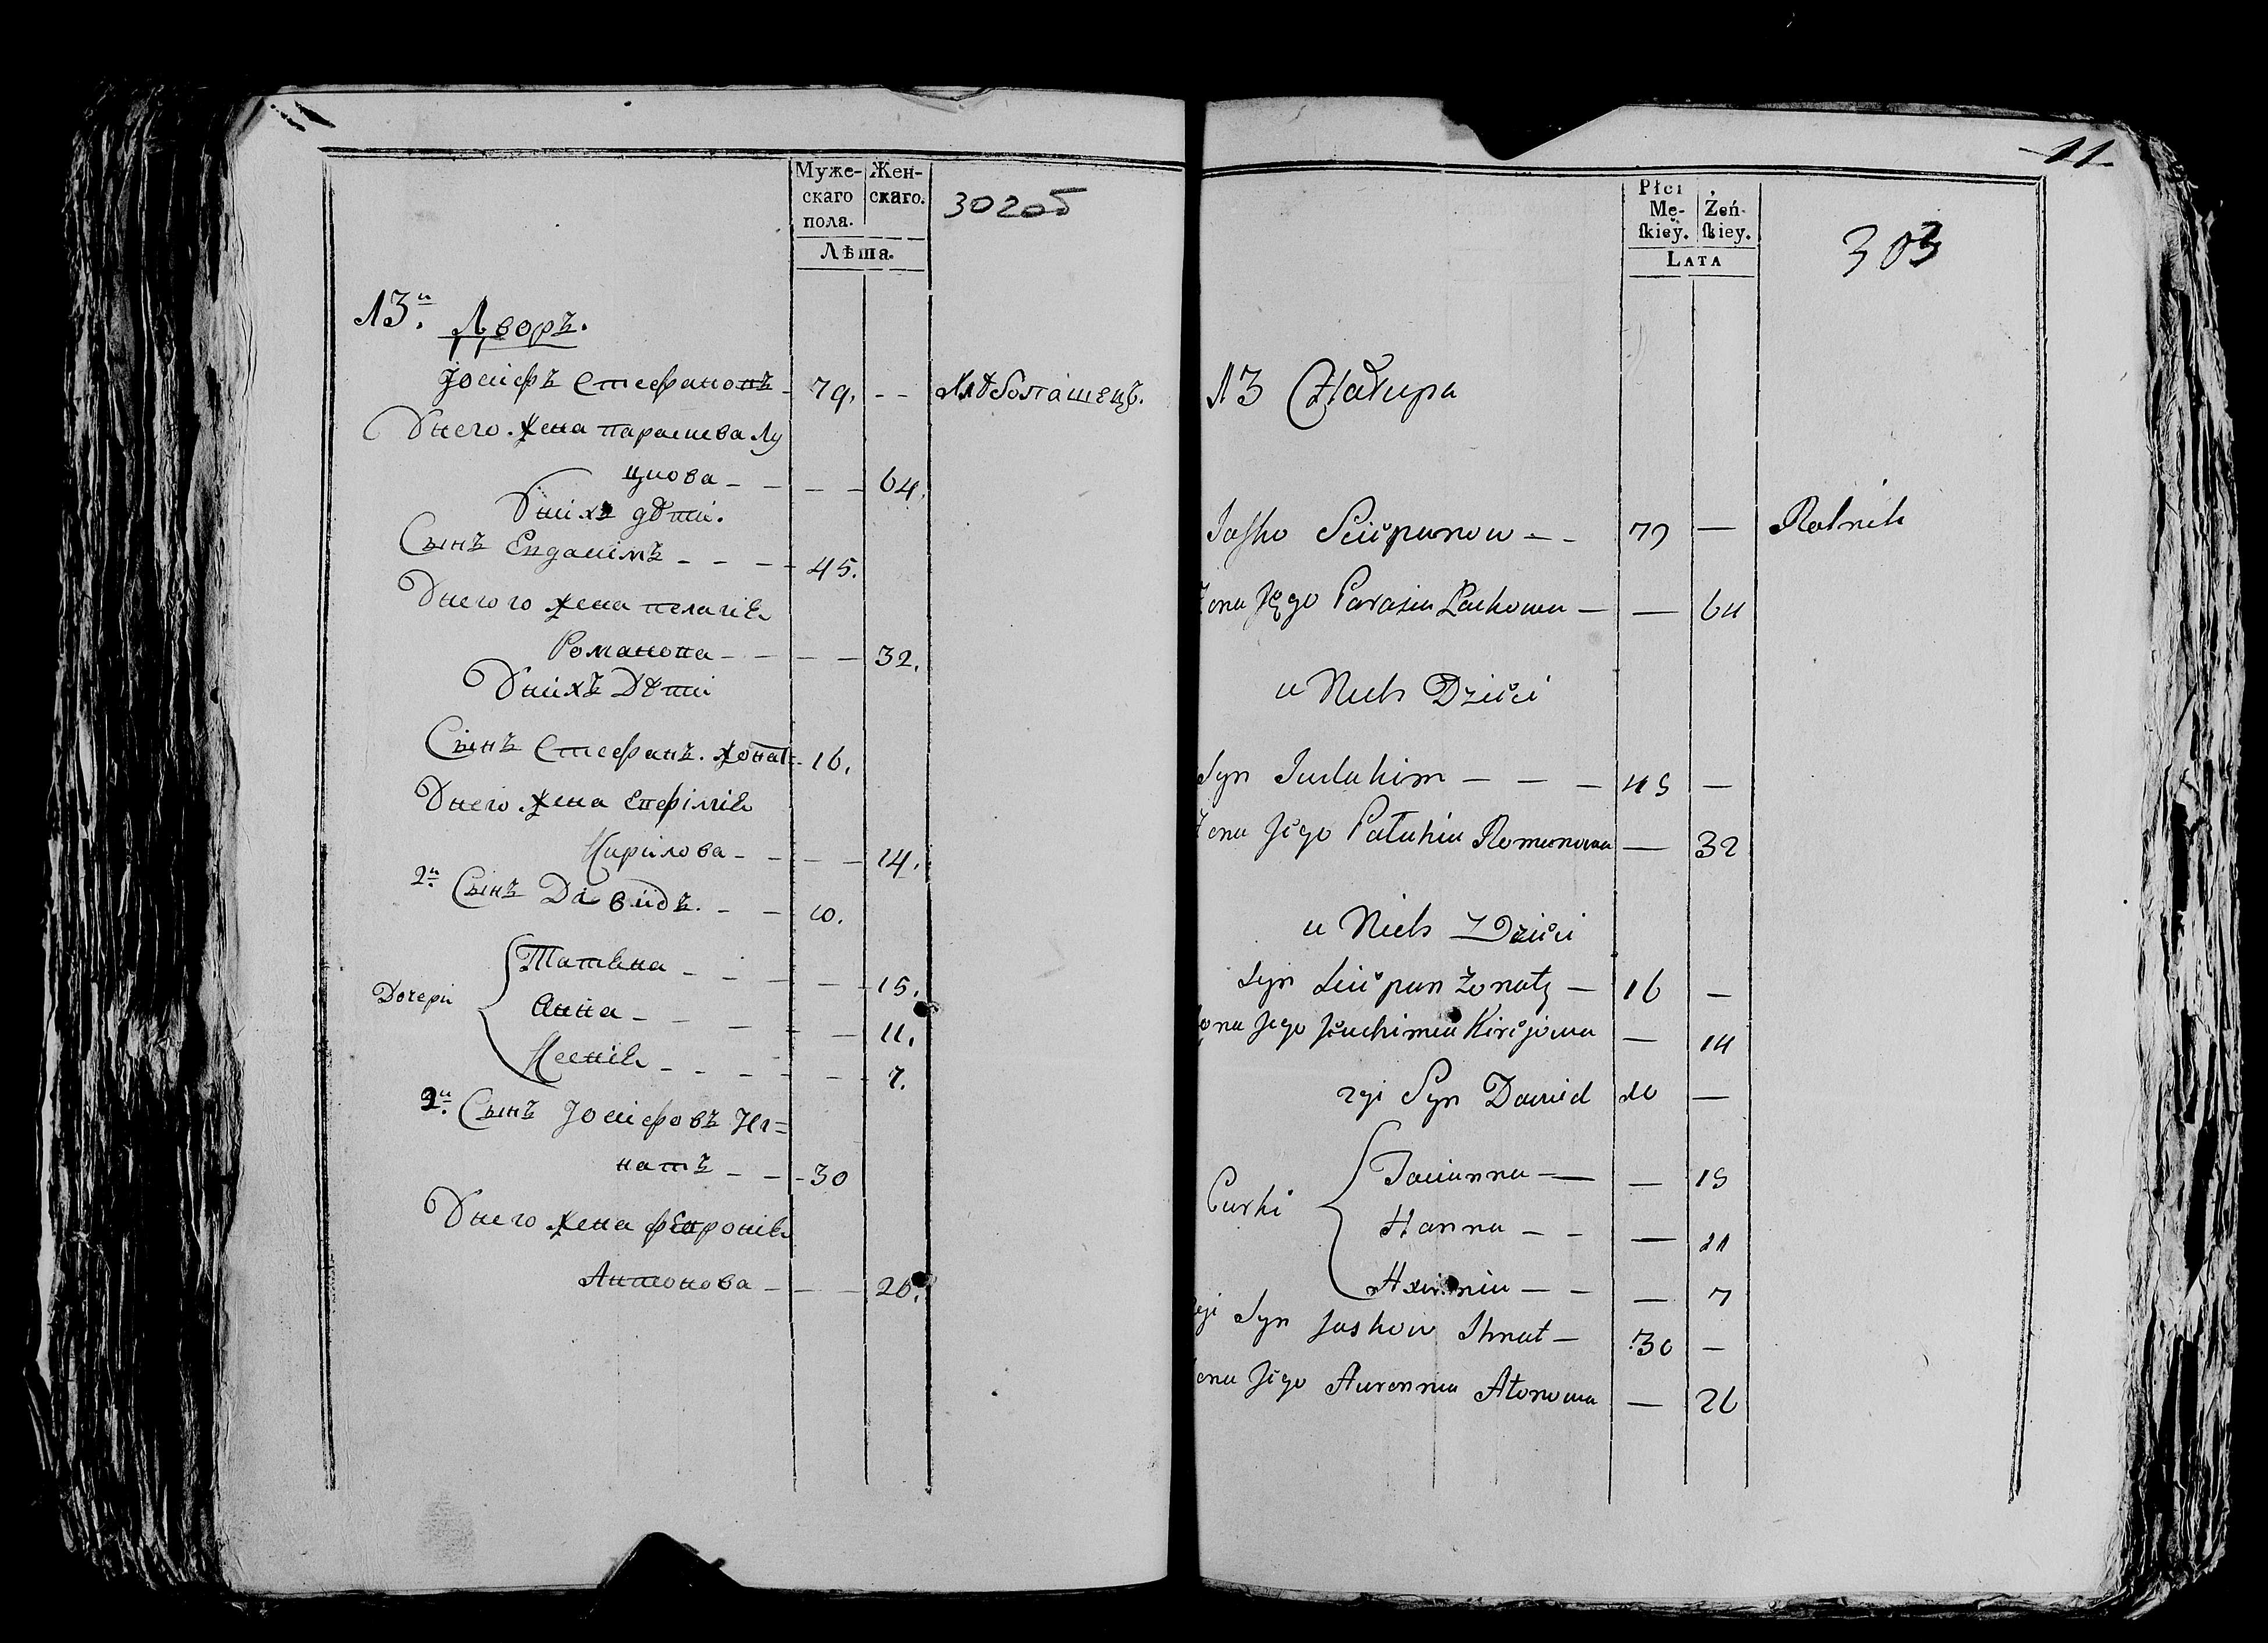 11
Муже-
скаго
пола.
Жен-
скаго.
302об
Лѣта.
13й.
Дворъ.
Іосифъ Стефановъ - 79. - - Хлѣбопашецъ.
Унего жена Парасцева Лу
цкова - - - - 64.
Унихъ дѣти.
Сынъ Евдакімъ - - - - 45.
Унегого жена Пелагія
Романова - - - - 32.
Унихъ Дѣти
Сынъ Стефанъ. Жонат - 16.
Унего жена Евфімія
Кирілова - - - - 14.
2й Сынъ Давидъ. - - 10.
Дочери
Татяна - - - - - 15.
Анна - - - - - 11.
Ксенія - - - - - 7.
2й Сынъ Іосифовъ Иг=
натъ - - - 30
Унего жена февронія
Антонова - - - 26.
11
Płci
Mę-
ſkiey.
Żeń-
ſkiey.
303
Lata
13 Chałupa
Jaſko Sciepanow - - 79 — Rolnik
Żona Jego Parasia Łackowa — — 64
u Nich Dzieci
Syn Judakim — — — 45 —
Żona Jego Pałahia Romanowa — 32
u Nich Dzieci
Syn Sciepan Żonaty — 16 —
Żona Jego Jeuchimia Kiryjowa — 14
2gi Syn Dawid 10 —
Curki
Tacianna — — 15
Hanna - - — 11
Axinnia — - — 7
2gi Syn Jaskow Ihnat — 30 —
Żona Jego Auronnia Atonowa — 26